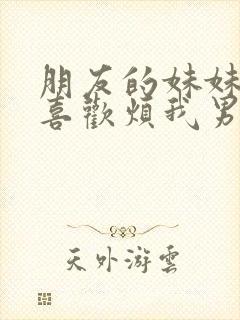 朋友的妹妹
喜歡煩我男
天外游雲